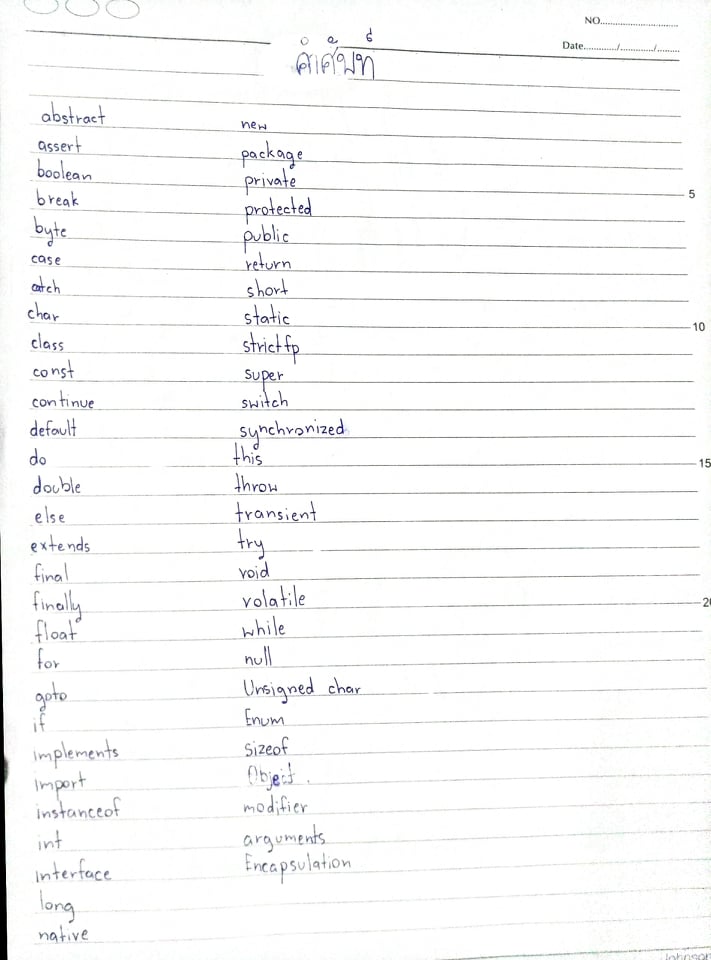 NO.
Date......./......./.......
คำศัพท์
abstract
assert
boolean
break
byte
case
catch
char
class
const
continue
default
do
double
else
extends
final
finally
float
for
goto
if
implements
import
instanceof
int
interface
long
native
new
package
private
protected
public
return
short
static
strictfp
super
switch
synchronized
this
throw
transient
try
void
volatile
while
null
Unsigned char
Enum
sizeof
Object.
modifier
arguments
Encapsulation
5
10
15